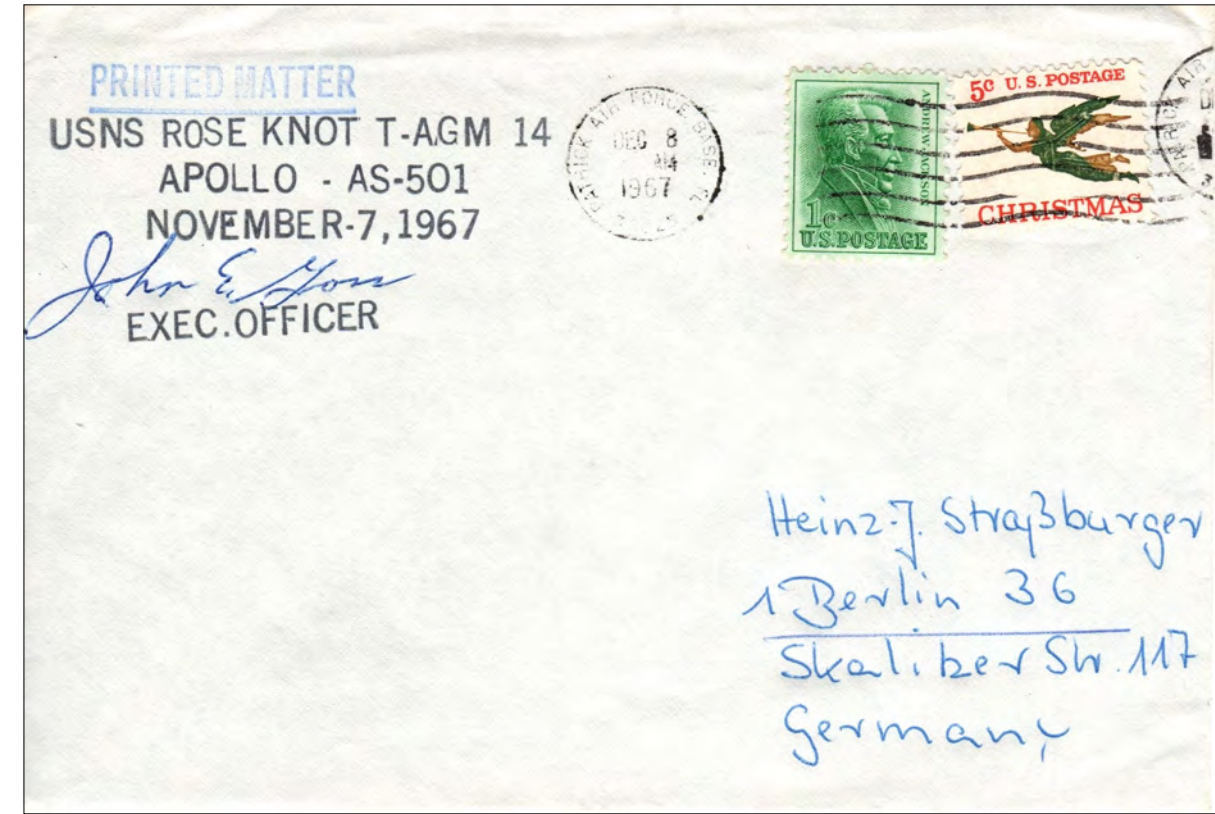 PRINTED MATTER
USNS ROSE KNOT T-AGM 14
APOLLO - AS-501
NOVEMBER-7, 1967
John E.
EXEC. OFFICER
PATRICK AIR FORCE BASE, FL
DEC 8
AM
1967
ANDREW JACKSON
1c
U.S. POSTAGE
5c U.S. POSTAGE
CHRISTMAS
PATRICK AIR
Heinz-J. Straßburger
1 Berlin 36
Skalitzer Str. 117
Germany